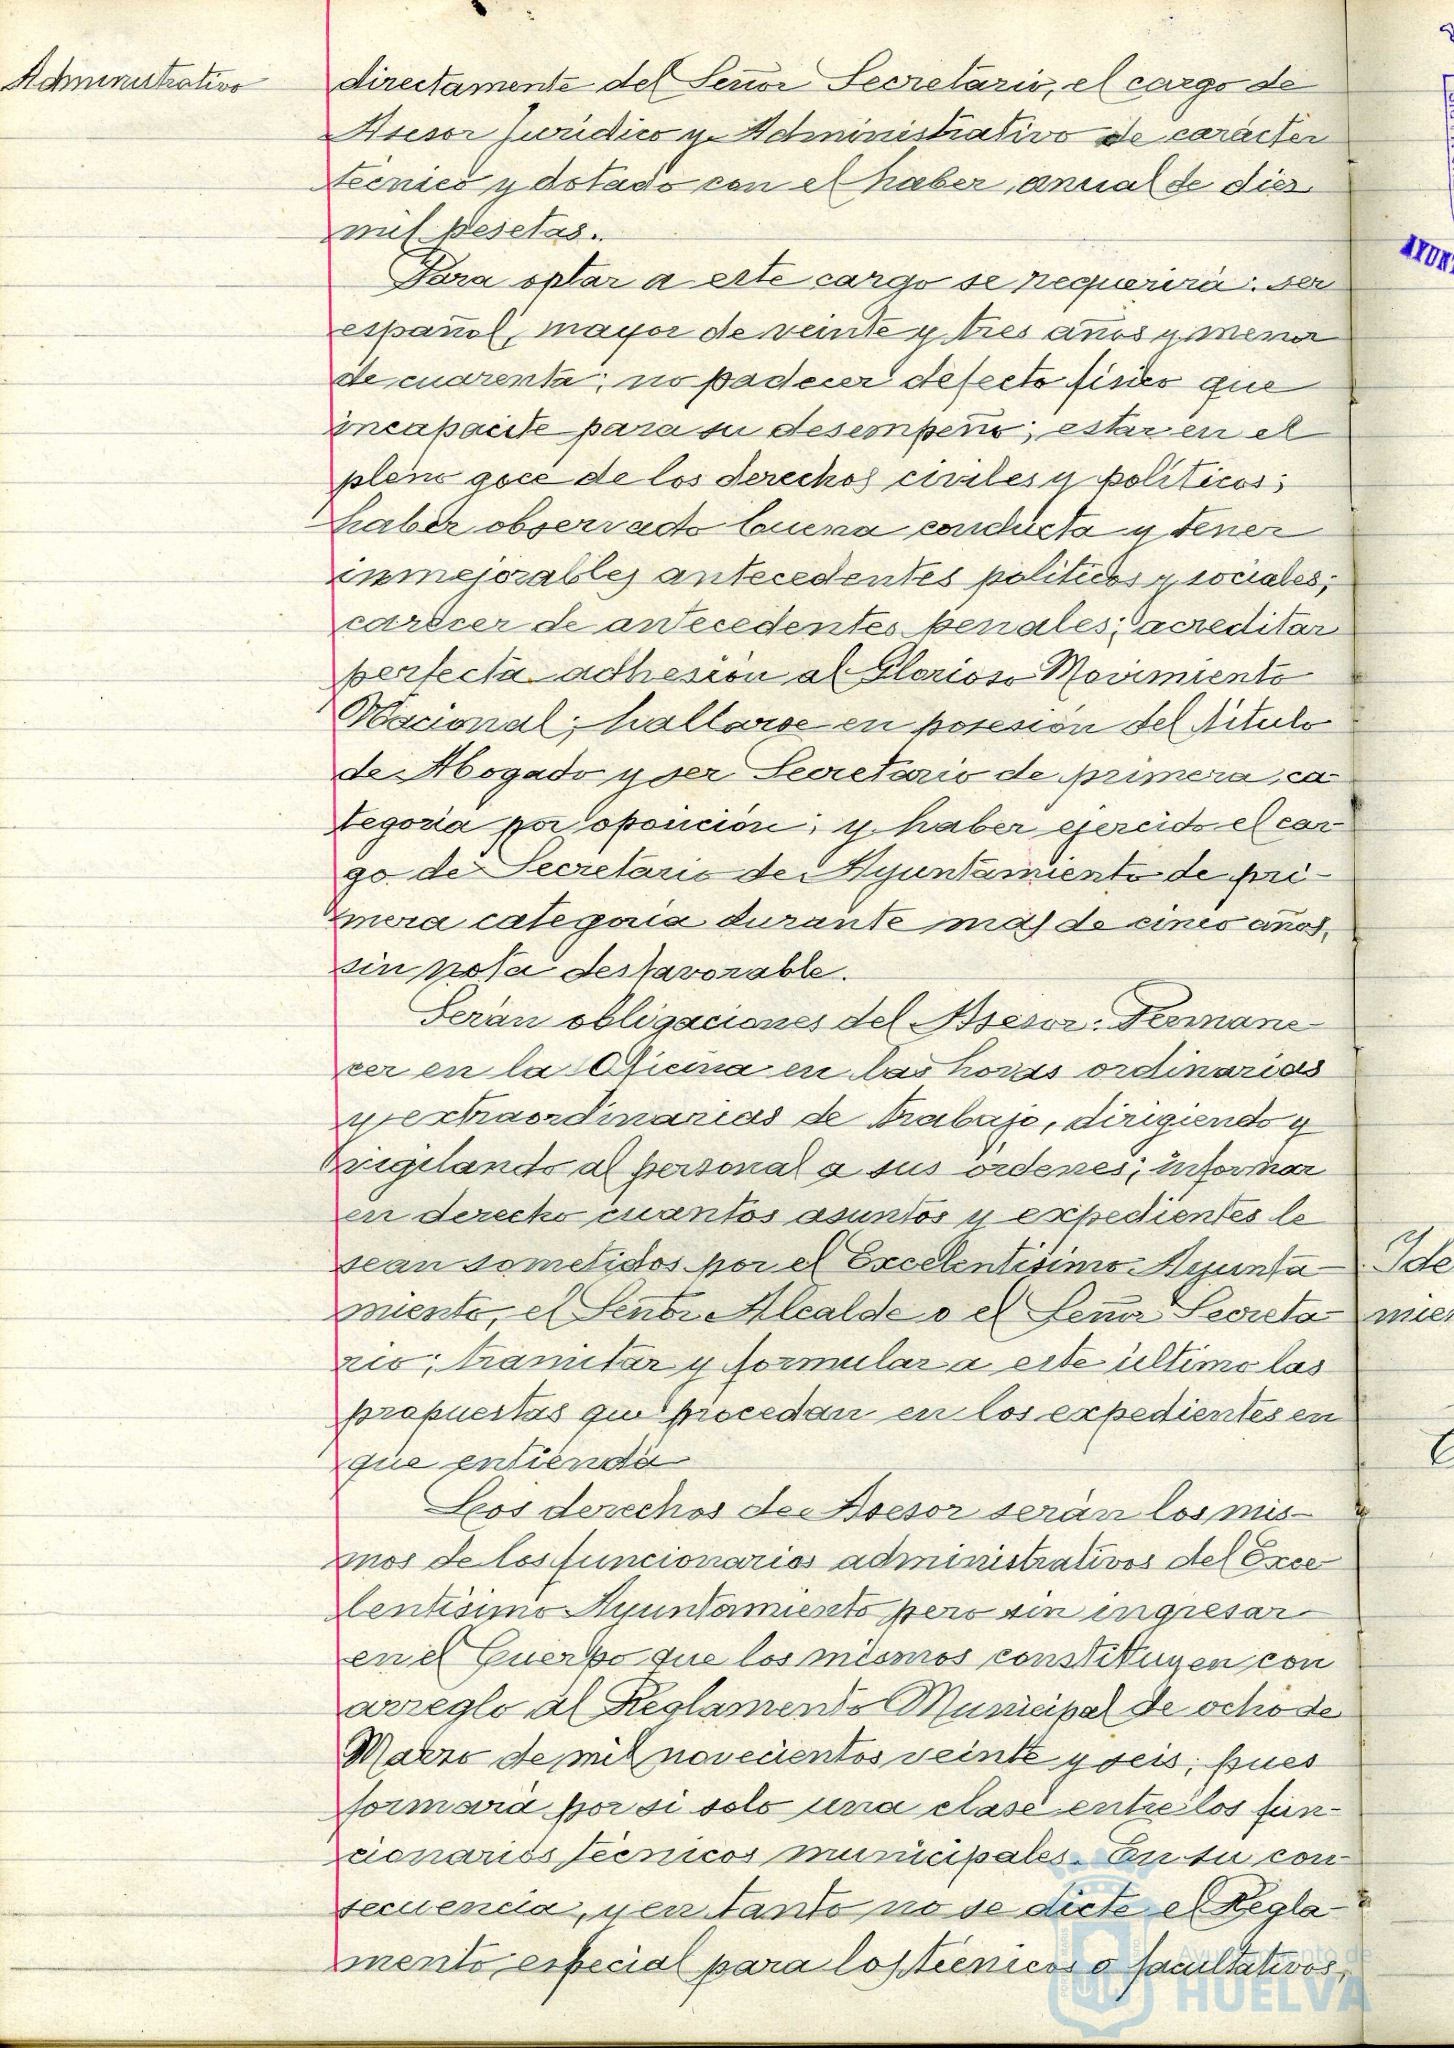 Administrativo
directamente del Señor Secretario, el cargo de
Asesor Jurídico y Administrativo de carácter
técnico y dotado con el haber anual de diez
mil pesetas.
Para optar a este cargo se requerirá: ser
español, mayor de veinte y tres años y menor
de cuarenta; no padecer defecto físico que
incapacite para su desempeño; estar en el
pleno goce de los derechos civiles y políticos;
haber observado buena conducta y tener
inmejorables antecedentes políticos y sociales;
carecer de antecedentes penales; acreditar
perfecta adhesión al Glorioso Movimiento
Nacional; hallarse en posesión del título
de Abogado y ser Secretario de primera ca-
tegoría por oposición; y haber ejercido el car-
go de Secretario de Ayuntamiento de pri-
mera categoría durante más de cinco años,
sin nota desfavorable.
Serán obligaciones del Asesor: Permane-
cer en la Oficina en las horas ordinarias
y extraordinarias de trabajo, dirigiendo y
vigilando al personal a sus órdenes; informar
en derecho cuantos asuntos y expedientes le
sean sometidos por el Excelentísimo Ayunta-
miento, el Señor Alcalde o el Señor Secreta-
rio; tramitar y formular a este último las
propuestas que procedan en los expedientes en
que entienda
Los derechos del Asesor serán los mis-
mos de los funcionarios administrativos del Exce-
lentísimo Ayuntamiento pero sin ingresar
en el Cuerpo que los mismos constituyen con
arreglo al Reglamento Municipal de ocho de
Marzo de mil novecientos veinte y seis; pues
formará por si solo una clase entre los fun-
cionarios técnicos municipales. En su con-
secuencia, y en tanto no se dicte el Regla-
mento especial para los técnicos o facultativos,
Ayuntamiento de
HUELVA
AYUN
Ide
mien